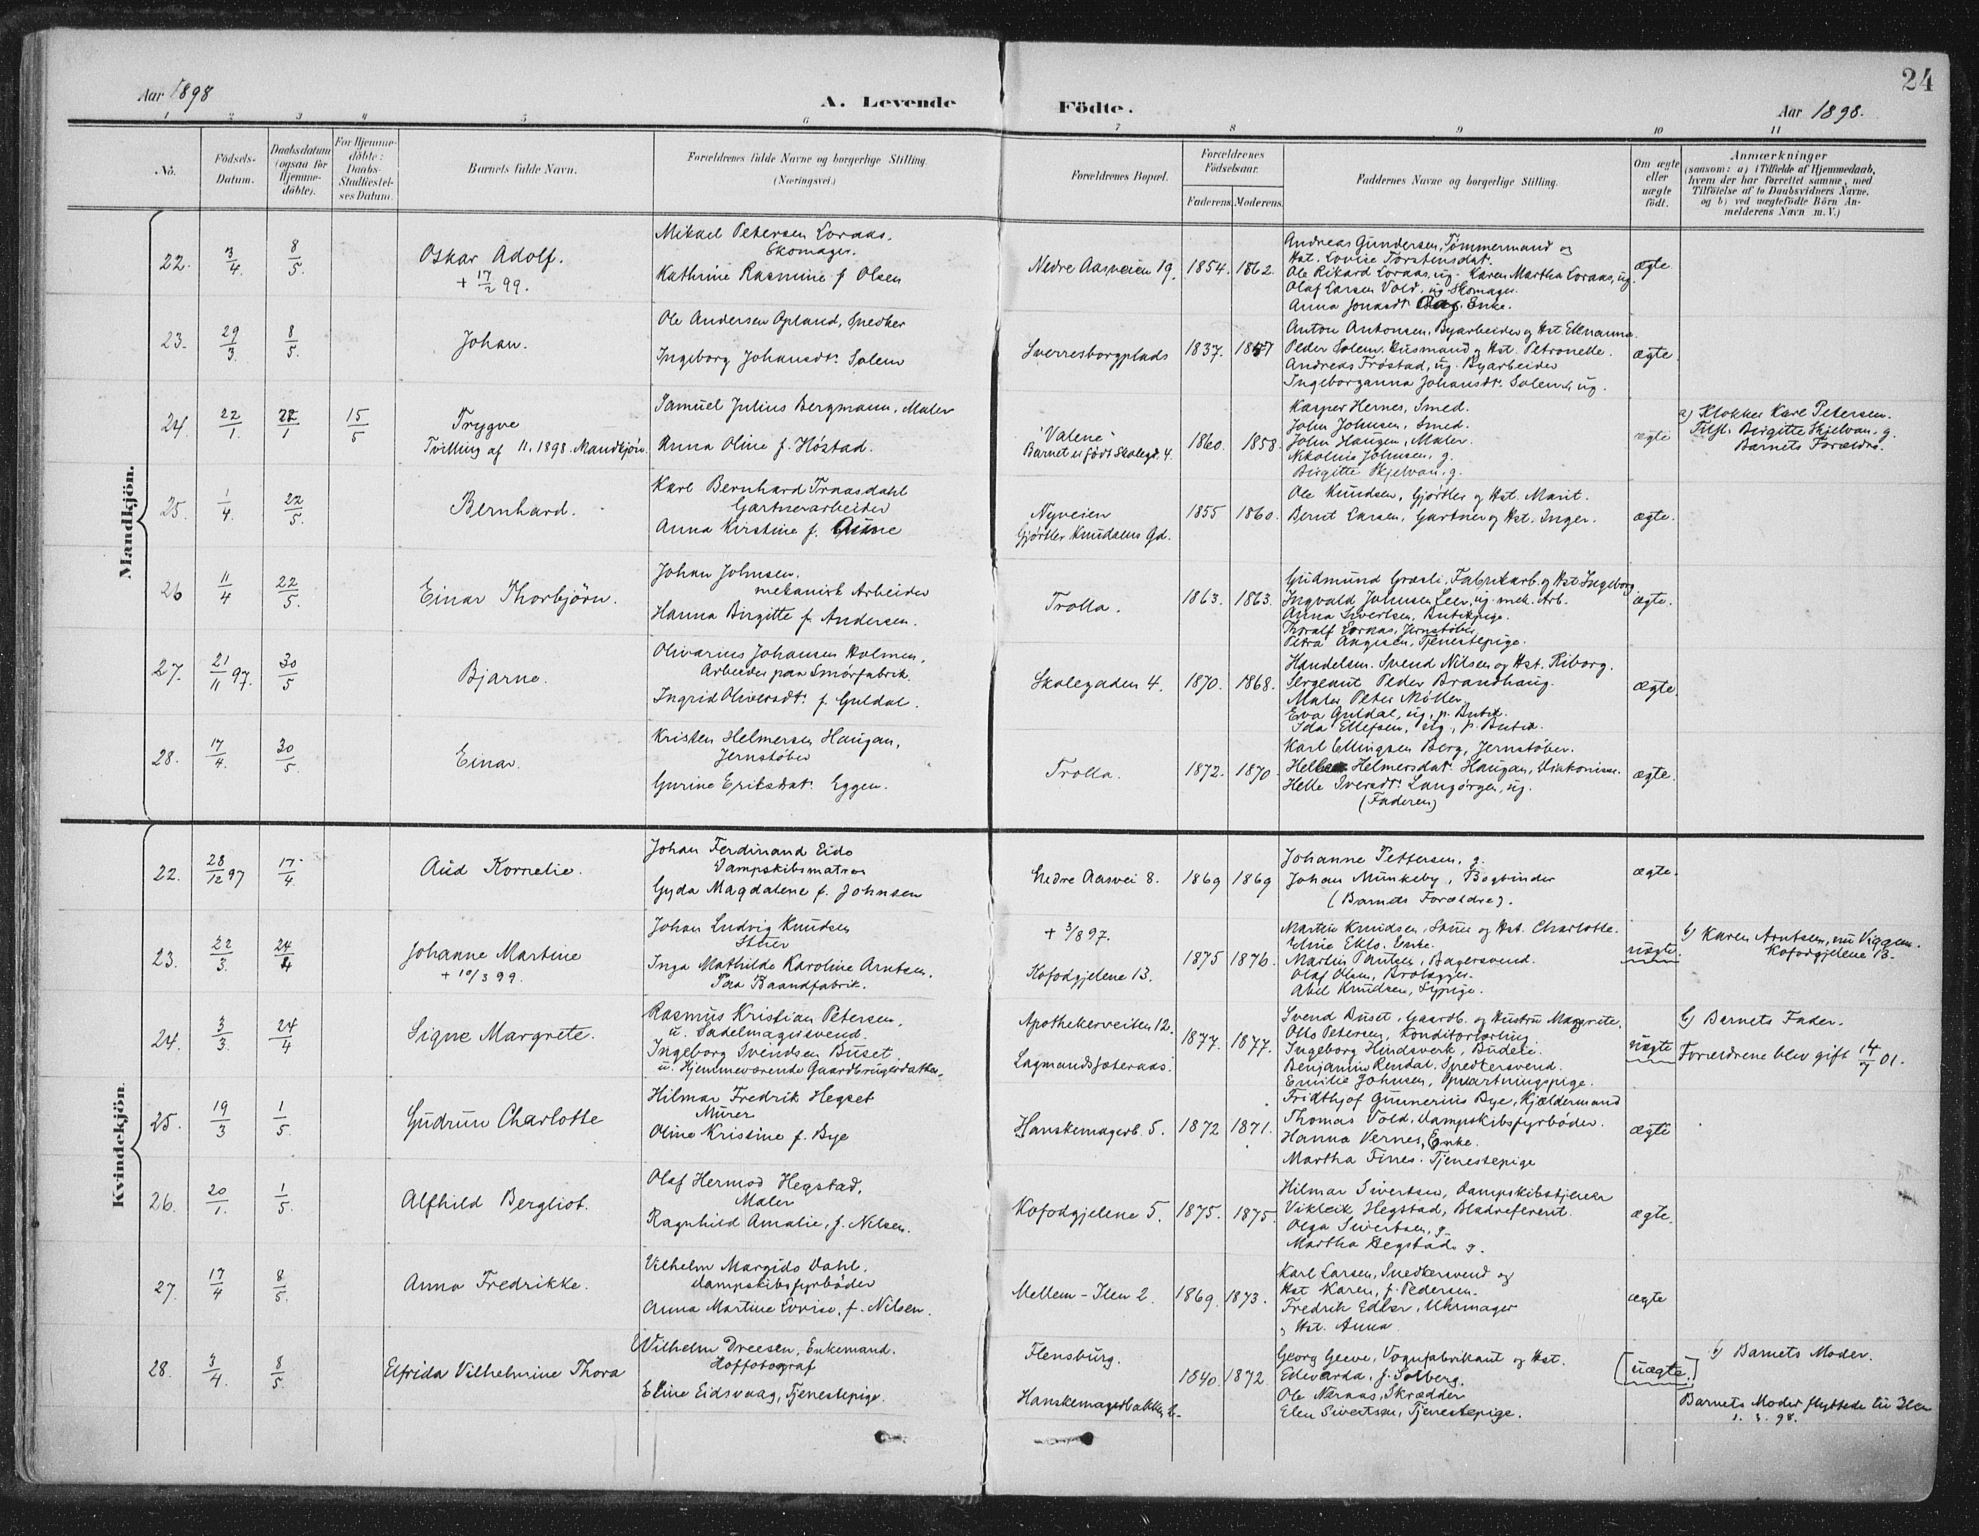 24
Aar 1898
A. Levende
Födte.
Aar 1898.
1 2 3 4 5 6 7 8 9 10 11
No.
Födsels-
Datum.
Daabsdatum
(ogsaa for
Hjemme-
döbte).
For Hjemme-
döbte:
Daabs-
Stadfæstel-
ses Datum.
Barnets fulde Navn.
Forældrenes fulde Navne og borgerlige Stilling
(Næringsvei.)
Forældrenes Bopæl.
Forældrenes
Födselsaar.
Faderens.
Moderens.
Faddernes Navne og borgerlige Stilling.
Om ægte
eller
uægte
födt.
Anmærkninger
(saasom: a) i Tilfælde af Hjemmedaab,
hvem der har forrettet samme, med
Tilföielse af to Daabsvidners Navne,
og b) ved uægtefödte Börn An-
melderens Navn m. V.)
Mandkjön.
22. 3/4 8/5
Oskar Adolf.
+ 17/2 99.
Mikael Petersen Loraas,
Skomager.
Kathrine Rasmine f. Olsen
Nedre Aasveien 19. 1854. 1862.
Andreas Gundersen, Tømmermand og
Hst. Lovise Torstensdat.
Ole Rikard Loraas, ug. Karen Martha Loraas, ug.
Olaf Larsen Vold, ug Skomager.
Anna Jonasdt. Enke.
ægte
23. 29/3 8/5
Johan.
Ole Andersen Opland, Snedker
Ingeborg Johansdt. Solem
Sverresborgplads 1837. 1847
Anton Antonsen, Byarbeider og Hst Ellenanna
Peder Solem, Husmand og Hst. Petronelle.
Andreas Frøstad, ug. Byarbeider
Ingeborganna Johansdt. Solem, ug.
ægte
24. 22/1 22/1 15/5
Trygve
Tvilling af 11. 1898. Mandkjön.
Samuel Julius Bergmann, Maler
Anna Oline f. Høstad.
"Valene"
Barnet er født Skolegd. 4.
1860. 1858.
Kasper Hernes, Smed.
John Johnsen, Smed.
John Haugen, Maler.
Nikoline Johnsen, g.
Birgitte Skjelvan, g.
ægte
a) Klokker Karl Petersen.
Tilst. Birgitte Skjelvan. g.
Barnets Forældre.
25. 1/4 22/5
Bernhard.
Karl Bernhard Traasdahl
Gartnerarbeider
Anna Kirstine f. Aune
Nyveien
Gjørtler Knudsens Gd.
1855 1860.
Ole Knudsen, Gjørtler og Hst. Marit.
Bernt Larsen, Gartner og Hst. Inger.
ægte.
26 11/4 22/5
Einar Thorbjörn.
Johan Johnsen.
mekanisk Arbeider
Hanna Birgitte f. Andersen.
Trolla. 1863. 1863.
Gudmund Graeli, Fabrikarb. og Hst Ingeborg
Ingvald Johnsen Leer, ug. mek. Arb.
Anna Sivertsen, Butikpige.
Thoralf Loraas, Jernstøber
Petra Angisen, Tjenestepige.
ægte.
27. 21/11 97. 30/5
Bjarne.
Olivarius Johansen Holmen,
Arbeider paa Smørfabrik.
Ingrid Oliversdt. f. Guldal.
Skolegaden 4. 1870. 1868.
Handelsm. Svend Nilsen og Hst. Riborg.
Sergeant Peder Brandhaug.
Maler Peter Møller.
Eva Guldal, ug, p. Butik.
Ida Ellefsen, ug, p. Butik.
ægte
28. 17/4. 30/5
Einar.
Kristen Helmersen Haugan,
Jernstøber
Gurine Eriksdat. Eggen.
Trolla. 1872. 1870.
Karl Ellingsen Berg, Jernstøber.
Helmersdat. Haugan, Diakonisse.
Helle Iversdt. Langørgen, ug.
(Faderen)
ægte.
Kvindekjön.
22. 28/12 97 17/4.
Aud Kornelie.
Johan Ferdinand Eide
Dampskibsmatros
Gyda Magdalene f. Johnsen
Nedre Aasvei 8. 1869 1869
Johanne Pettersen, g.
Johan Munkeby, Bogbinder
(Barnets Forældre).
ægte.
23. 22/3. 24/4
Johanne Martine
+ 10/3 99.
Johan Ludvig Knudsen
Stuer
Inga Mathilde Karoline Arntsen.
Paa Baandfabrik.
+ 3/8 97.
Kofodgjelene 13.
1875 1876.
Martin Knudsen, Stuer og Hst. Charlotte.
Enke.
Martin Paulsen, Bagersvend.
Olaf Olsen, Brolægger.
Abel Knudsen, Sypige.
uægte.
b) Karen Arntsen, nu Viggen.
Kofodgjelene 13.
24. 3/3 24/4
Signe Margrete.
Rasmus Kristian Petersen,
u. Sadelmagersvend.
Ingeborg Svendsen Buset.
u. Hjemmeværende Gaardbrugerdatter.
Apothekerveiten 12.
Lagmandssæteraas.
1877. 1877.
Svend Buset, Gaardb. og Hustru Margrete.
Otto Petersen, Konditorlærling
Ingeborg Hindsverk, Budeie.
Benjamin Rendal. Snedkersvend.
Emilie Johnsen, Opvartningspige.
uægte
b) Barnets Fader.
Forældrene blev gift 14/7 01.
25. 19/3 1/5
Gudrun Charlotte
Hilmar Fredrik Hegset
Murer
Oline Kristine f. Bye
Hanskemagerb. 5. 1872 1871.
Fridthjof Gunnerius Bye, Kjældermand
Thomas Vold, Dampskibsfyrbøder.
Hanna Vernes, Enke.
Martha Fines. Tjenestepige
ægte
26. 20/1. 1/5
Alfhild Bergliot.
Olaf Hermod Hegstad,
Maler
Ragnhild Amalie, f. Nilsen.
Kofodgjelene 5. 1875. 1875.
Hilmar Sivertsen, Dampskibstjener
Hegstad, Bladreferent.
Olga Sivertsen, g.
Martha Hegstad g.
ægte.
27. 17/4 8/5.
Anna Fredrikke.
Vilhelm Margido Dahl.
Dampskibsfyrbøder
Anna Martine Lovise, f. Nilsen.
Mellem-Ilen 2. 1869. 1873.
Karl Larsen, Snedkersvend og
Hst Karen, f. Pedersen.
Fredrik Edler, Uhrmager
og Hst. Anna
ægte
28. 3/4. 8/5.
Elfrida Vilhelmine Thora
Vilhelm Dreesen, Enkemand.
Hoffotograf
Eline Eidsvaag, Tjenestepige.
Flensburg.
Hanskemagerbakken 2.
1840. 1872.
Georg Greve, Vognfabrikant og Hst.
Edvarda, f. Solberg.
Ole Næraas, Skrædder
Elen Sivertsen, Tjenestepige.
[uægte.]
b) Barnets Moder.
Barnets Moder flyttede til Ilen
1. 3. 98.